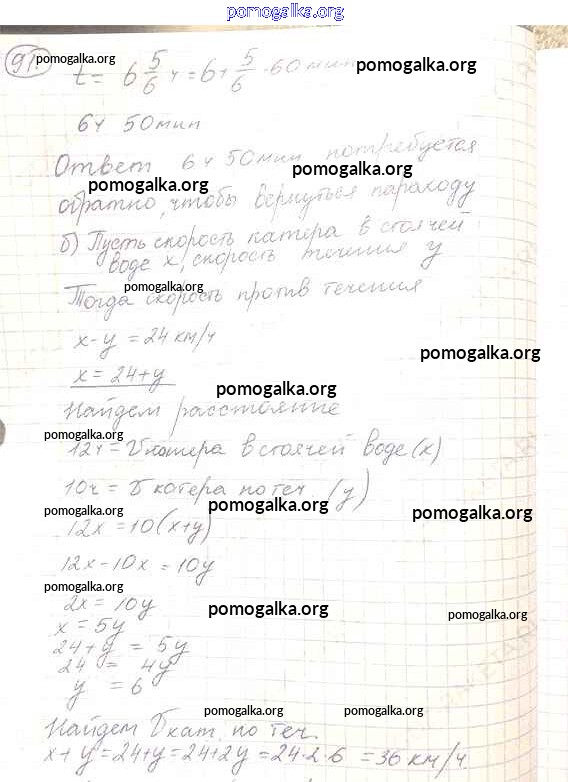 pomogalka.org
91. pomogalka.org
t = 6 5/6 ч = 6 + 5/6 · 60 мин pomogalka.org
pomogalka.org
6ч 50мин
Ответ 6ч 50мин потребуется
pomogalka.org pomogalka.org
обратно, чтобы вернуться пароходу
б) Пусть скорость катера в стоячей
воде x, скорость течения y
Тогда скорость против течения
pomogalka.org
x - y = 24 км/ч
pomogalka.org
x = 24 + y
pomogalka.org
Найдем расстояние
pomogalka.org
12ч = V катера в стоячей воде (x)
10ч = V катера по теч (y)
pomogalka.org pomogalka.org pomogalka.org
12x = 10(x+y)
12x - 10x = 10y
pomogalka.org
2x = 10y
pomogalka.org pomogalka.org
x = 5y
24 + y = 5y
24 = 4y
y = 6
pomogalka.org pomogalka.org
Найдем V кат. по теч.
x + y = 24 + y = 24 + 2y = 24 · 2 · 6 = 36 км/ч